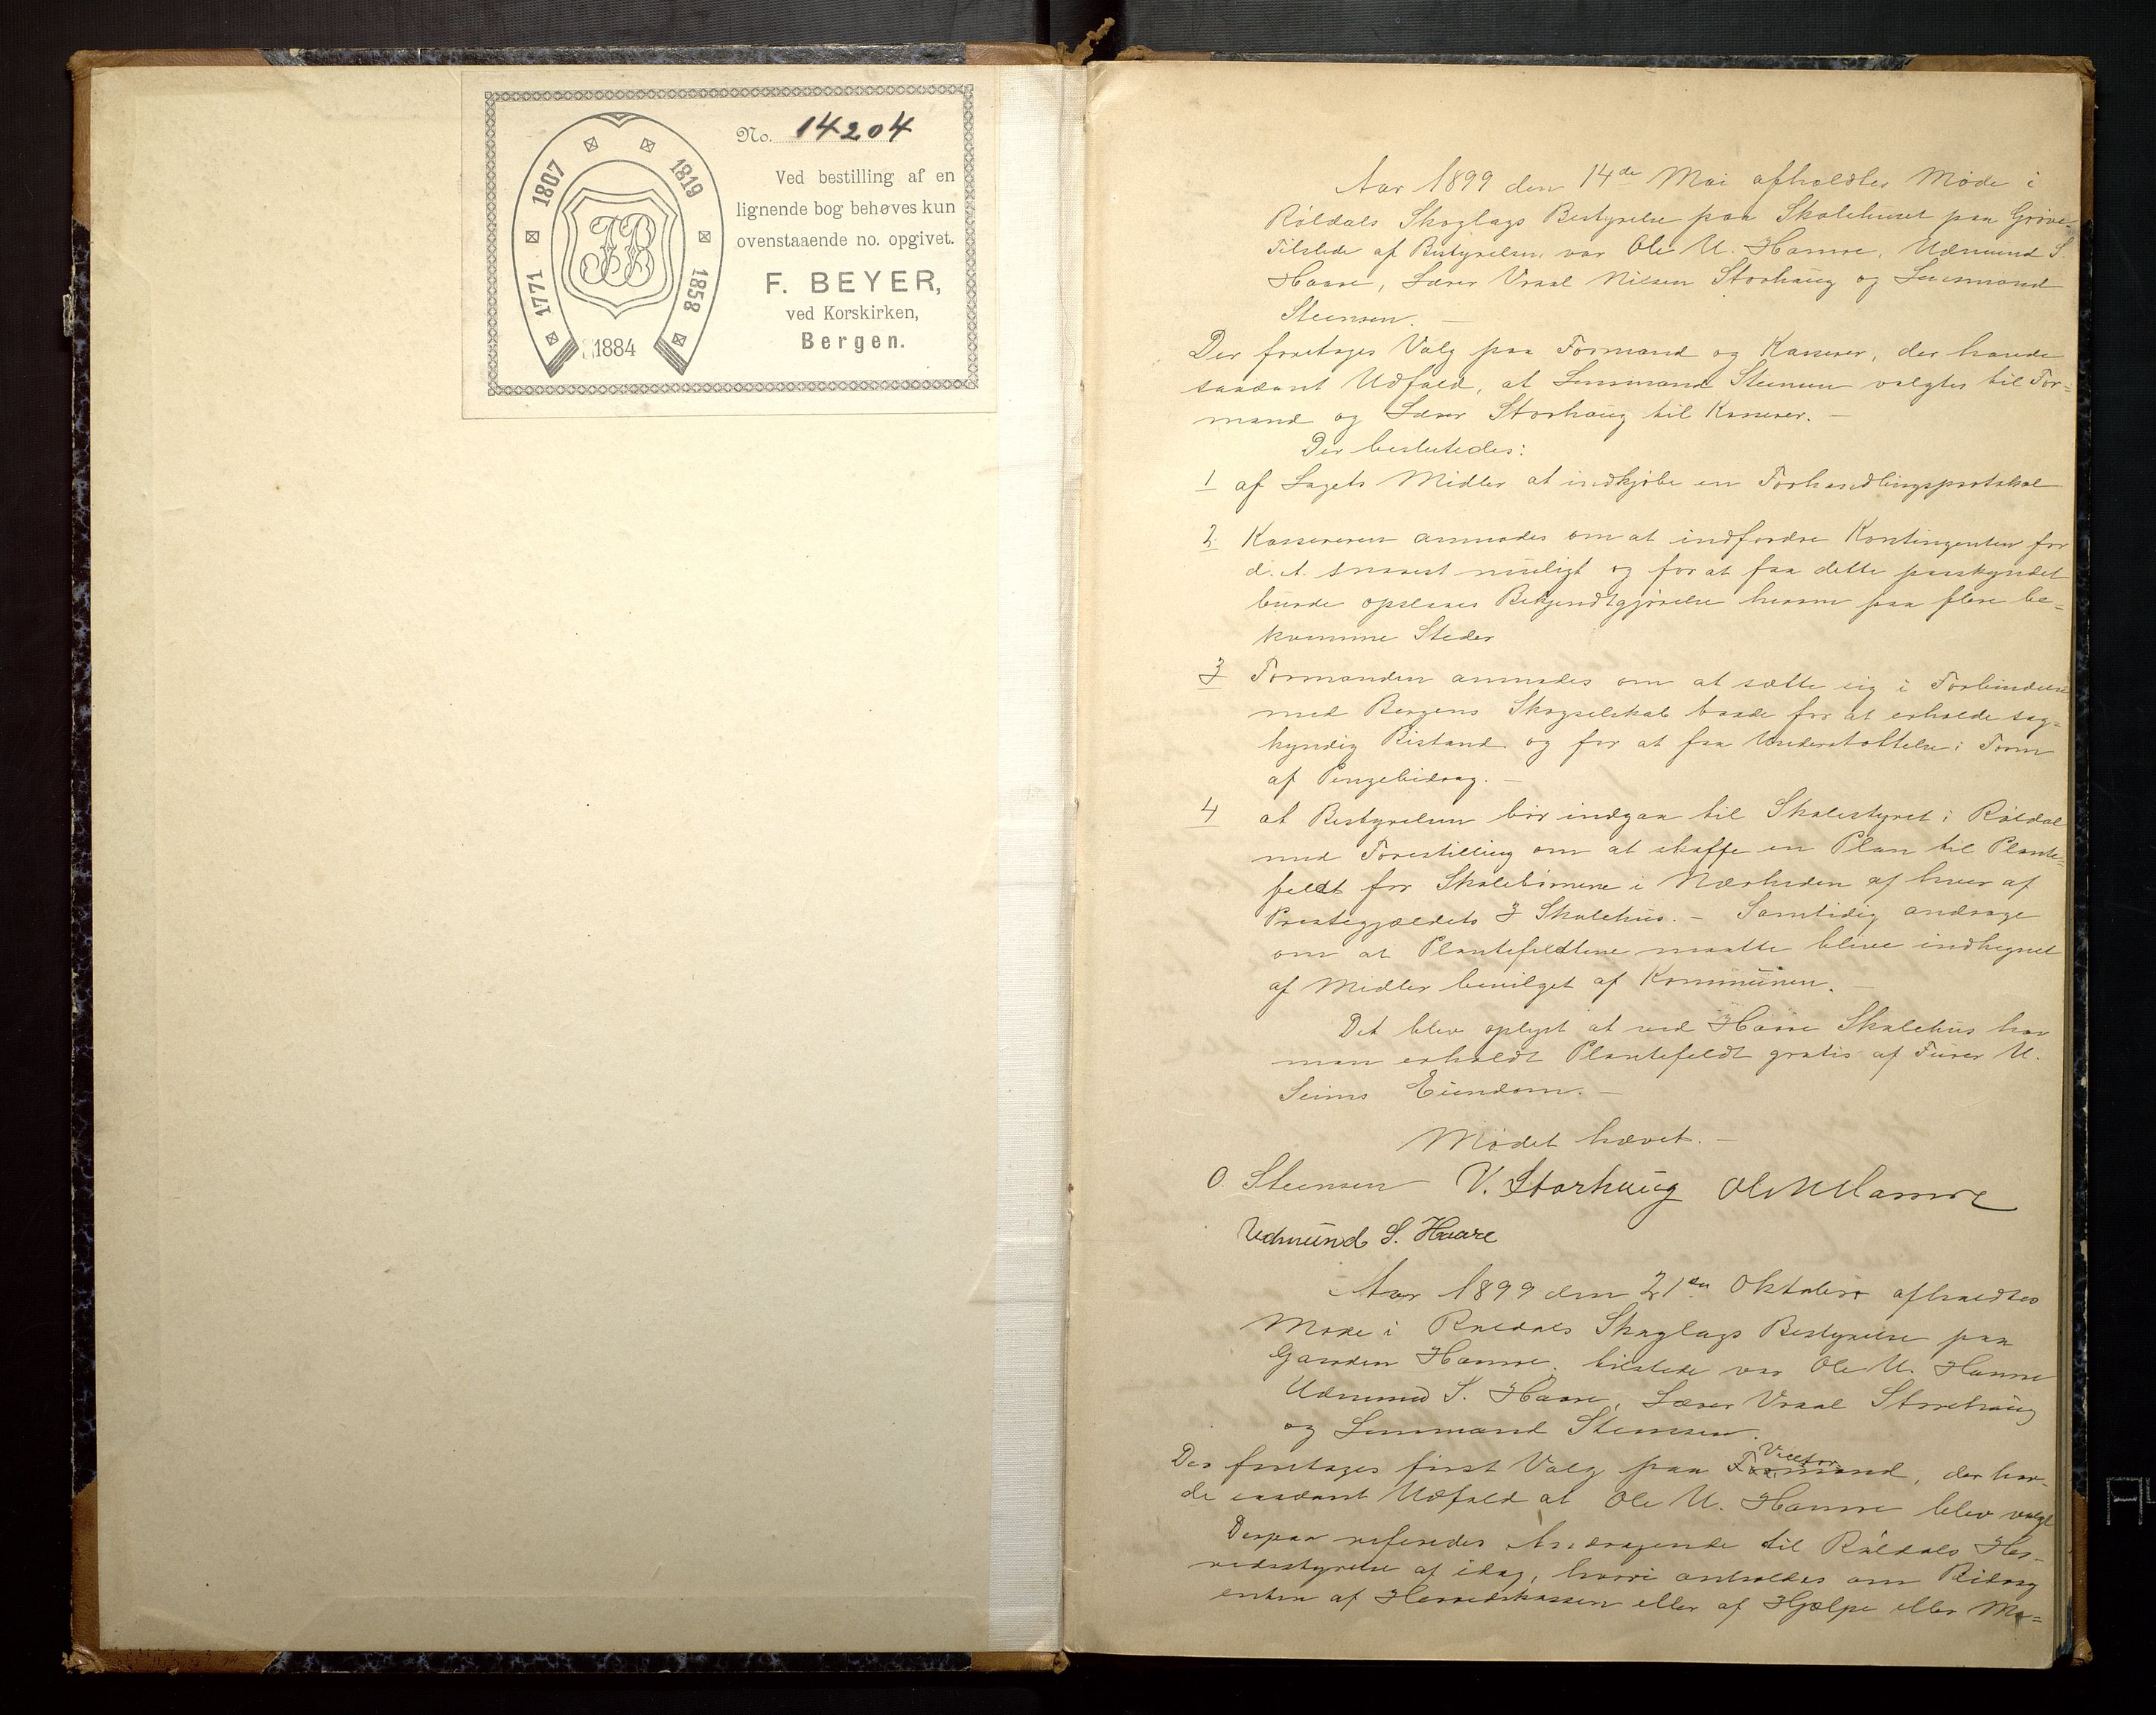 1771
1807
1819
1858
1884
JB
No. 14204
Ved bestilling af en
lignende bog behøves kun
ovenstaaende no. opgivet.
F. BEYER,
ved Korskirken,
Bergen.
Aar 1899 den 14de Mai afholdtes Møde i
Røldals Skoglags Bestyrelse paa Skolehuset paa Grøve.
Tilstede af Bestyrelsen var Ole U. Hamre, Udmund S.
Haare, Lærer Vraal Nilsen Storhaug og Lensmand
Steensen. –
Der foretoges Valg paa Formand og Kasserer, der havde
saadant Udfald, at Lensmand Steensen valgtes til For=
mand og Lærer Storhaug til Kasserer. –
Der besluttedes:
1 af Lagets Midler at indkjøbe en Forhandlingsprotokol
2 Kassereren anmodes om at indfordre Kontingenten for
d. A. snarest muligt og for at faa dette paaskyndet
burde opslaaes Bekjendtgjørelse herom paa flere be=
kvemme Steder
3 Formanden anmodes om at sætte sig i Forbindelse
med Bergens Skogselskab baade for at erholde sag=
kyndig Bistand og for at faa Understøttelse i Form
af Pengebidrag. –
4 at Bestyrelsen bør indgaa til Skolestyret i Røldal
med Forestilling om at skaffe en Plan til Plante=
feldt for Skolebørnene i Nærheden af hver af
Prestegjældets 3 Skolehus. – Samtidig andrage
om at Plantefeldtene maatte blive indhegnet
af Midler bevilget af Kommunen. –
Det blev oplyst at ved Haare Skolehus har
man erholdt Plantefeldt gratis af Furer U.
Seims Eiendom. –
Mødet hævet. –
O. Steensen V. Storhaug Ole U Hamre
Udmund S. Haare
Aar 1899 den 21de Oktober afholdtes
Møde i Røldals Skoglags Bestyrelse paa
Gaarden Hamre. tilstede var Ole U. Hamre
Udmund S. Haare, Lærer Vraal Storehaug
og Lensmand Steensen.
Der foretoges først Valg paa Viceformand, der hav-
de saadant Udfald at Ole U. Hamre blev valgt
Derpaa refereredes Andragende til Røldals Her-
redsstyrelse af idag, hvori anholdes om Bidrag
enten af Herredskassen eller af Hjælpe eller Ma=